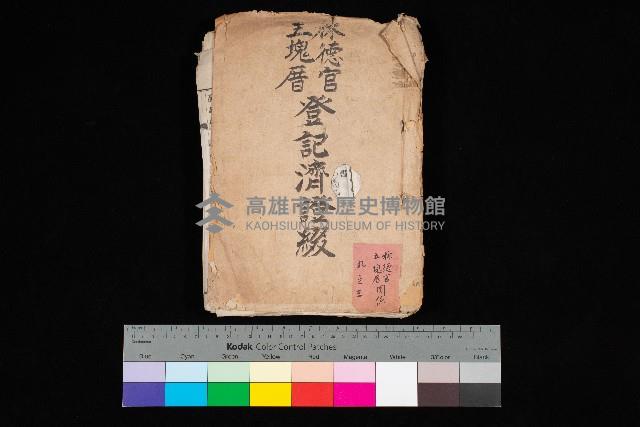 林德官
五塊厝
登記濟證綴
高雄市立歷史博物館
KAOHSIUNG MUSEUM OF HISTORY
林德官
五塊厝関係
Kodak Color Control Patches
Blue Cyan Green Yellow Red Magenta White 3/Color Black